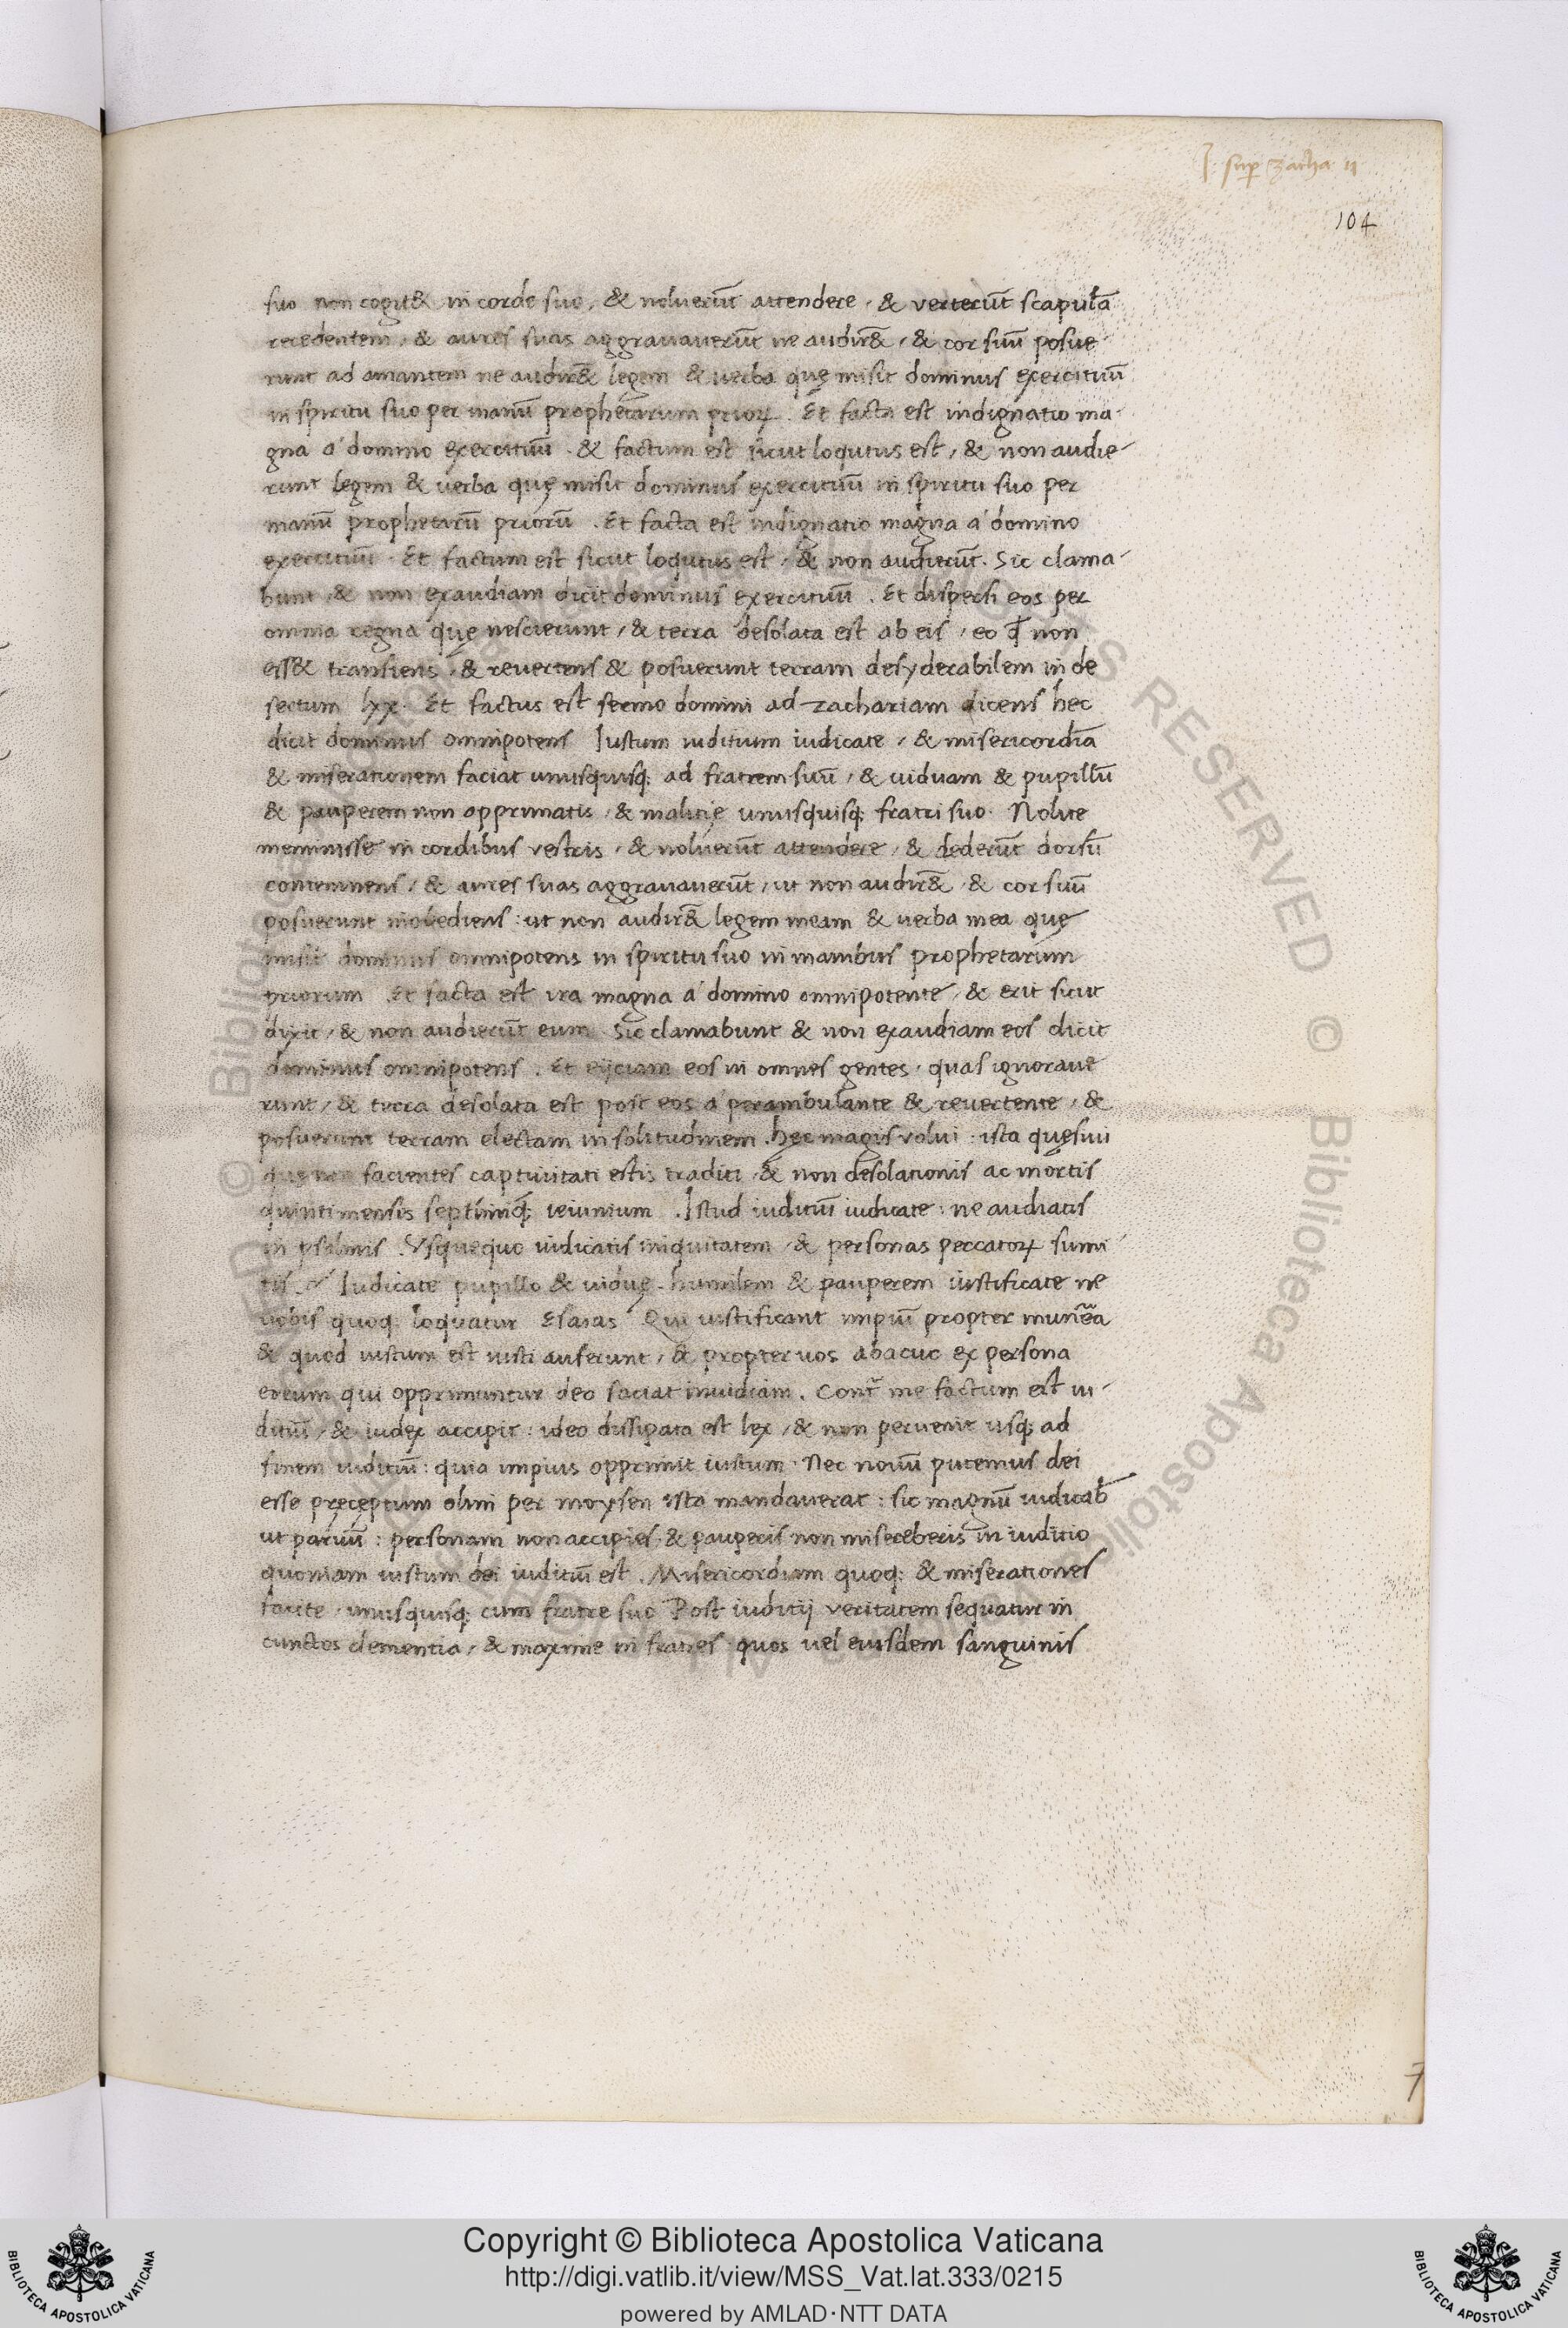 I. sup zacha ii
104
suo non cogit& in corde suo, & noluerūt attendere, & verterūt scapulā
recedentem, & aures suas aggravaverūt ne audir&̄, & cor suū posue
runt ad amantem ne audir&̄ legem & verba quę misit dominus exercituū
in spiritu suo per manū prophetarum prioꝝ. Et facta est indignatio ma-
gna a' domino exercituū. & factum est sicut loqutus est, & non audie-
runt legem & verba quę misit dominus exercituū in spiritu suo per
manū prophetarū priorū. Et facta est indignatio magna a' domino
exercituū. Et factum est sicut loqutus est, & non audierūt. Sic clama-
bunt, & non exaudiam dicit dominus exercituū. Et dispersi eos per
omnia regna quę nescierunt, & terra desolata est ab eis, eo ꝙ non
ess& transiens, & revertens & posuerunt terram desyderabilem in de
sertum lxx. Et factus est sermo domini ad zachariam dicens hec
dicit dominus omnipotens Iustum iuditium iudicate, & misericordiā
& miserationem faciat unusquisq; ad fratrem suū, & viduam & pupillū
& pauperem non opprimatis, & malitię unusquisq; fratri suo. Nolite
meminisse in cordibus vestris, & noluerūt attendere, & dederūt dorsū
contemnens, & aures suas aggravaverūt, ut non audir&̄, & cor suū
posuerunt inobediens: ut non audir&̄ legem meam & verba mea quę
misit dominus omnipotens in spiritu suo in manibus prophetarum
priorum. Et facta est ira magna a' domino omnipotente, & erit sicut
dixit, & non audierūt eum. Sic clamabunt & non exaudiam eos dicit
dominus omnipotens. Et eijciam eos in omnes gentes, quas ignorave
runt, & terra desolata est post eos a' perambulante & revertente, &
posuerunt terram electam in solitudinem. hęc magis volui: ista quęsivi
quę non facientes captivitati estis traditi, & non desolationis ac mortis
quinti mensis septimiq; ieiunium. Istud iuditiū iudicate: ne audiatis
in psalmis. Vsquequo iudicatis iniquitatem, & personas peccatoꝝ sumi-
tis. Iudicate pupillo & viduę. humilem & pauperem iustificate ne
vobis quoq; loquatur Esaias Qui iustificant impiū propter munera
& quod iustum est iusti auferunt, & propter vos abacuc ex persona
eorum qui opprimuntur deo faciat invidiam. Contr̄ me factum est iu-
ditiū, & iudex accipit: ideo dissipata est lex, & non pervenit usq; ad
finem iuditiū: quia impius opprimit iustum. Nec novū putemus dei
esse pręceptum olim per moysen ista mandaverat: sic magnū iudicab̄
ut parvū: personam non accipies, & pauperis non misereberis in iuditio
quoniam iustum dei iuditiū est. Misericordiam quoq; & miserationes
facite, unusquisq; cum fratre suo Post iuditij veritatem sequatur in
cunctos clementia, & maxime in fratres quos vel eiusdem sanguinis
7
© Biblioteca Apostolica Vaticana
ALL RIGHTS RESERVED
Copyright © Biblioteca Apostolica Vaticana
http://digi.vatlib.it/view/MSS_Vat.lat.333/0215
powered by AMLAD·NTT DATA
BIBLIOTECA APOSTOLICA VATICANA
BIBLIOTECA APOSTOLICA VATICANA